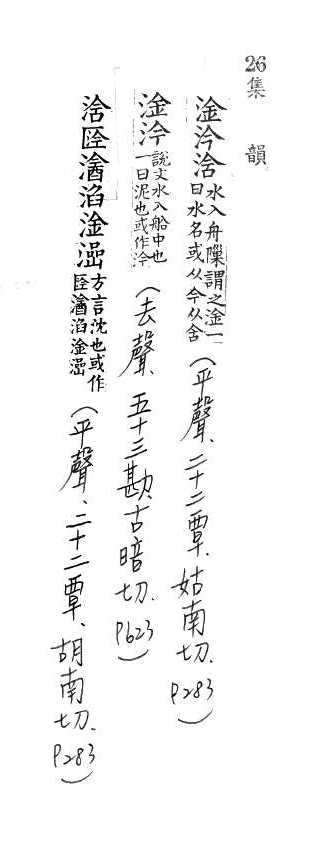 26
集韻
淦汵浛水入舟隟謂之淦一曰水名或从今从舍(平聲、二十二覃、姑南切. P283)
淦汵說文水入船中也一曰泥也或作汵(去聲、五十三勘、古暗切. P623)
浛方言沈也或作(平聲、二十二覃、胡南切. P283)